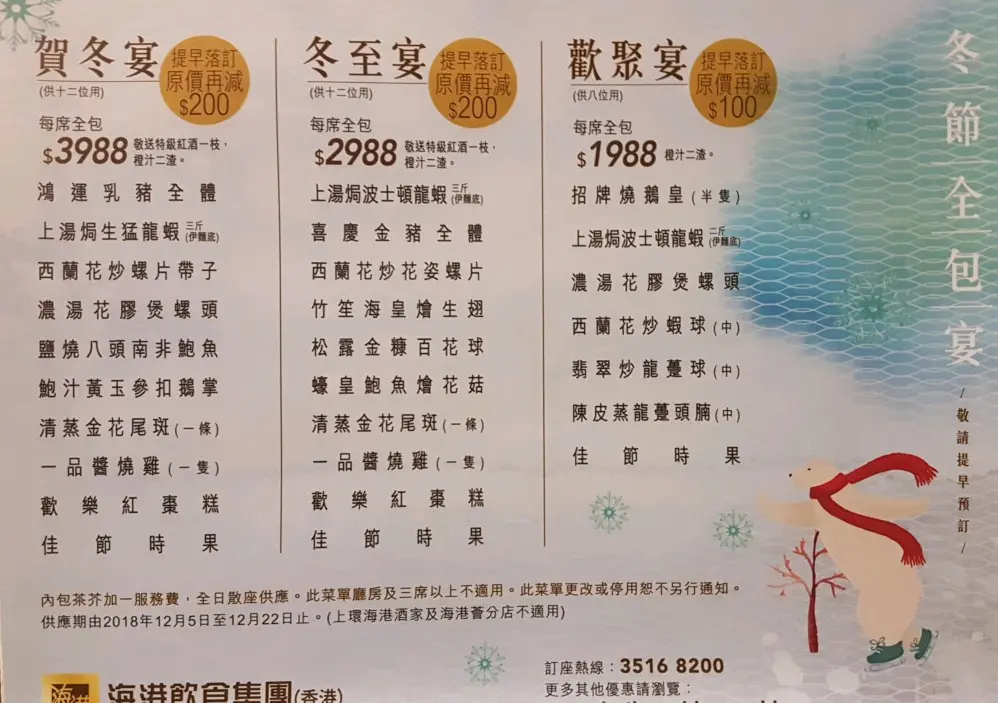 賀冬宴
提早落訂
原價再減
$200
(供十二位用)
每席全包
$3988 敬送特級紅酒一枝，
橙汁二渣。
鴻運乳豬全體
上湯焗生猛龍蝦 三斤
(伊麵底)
西蘭花炒螺片帶子
濃湯花膠煲螺頭
鹽燒八頭南非鮑魚
鮑汁黃玉參扣鵝掌
清蒸金花尾斑(一條)
一品醬燒雞(一隻)
歡樂紅棗糕
佳節時果
冬至宴
提早落訂
原價再減
$200
(供十二位用)
每席全包
$2988 敬送特級紅酒一枝，
橙汁二渣。
上湯焗波士頓龍蝦 三斤
(伊麵底)
喜慶金豬全體
西蘭花炒花姿螺片
竹笙海皇燴生翅
松露金糠百花球
蠔皇鮑魚燴花菇
清蒸金花尾斑(一條)
一品醬燒雞(一隻)
歡樂紅棗糕
佳節時果
歡聚宴
提早落訂
原價再減
$100
(供八位用)
每席全包
$1988 橙汁二渣。
招牌燒鵝皇(半隻)
上湯焗波士頓龍蝦 二斤
(伊麵底)
濃湯花膠煲螺頭
西蘭花炒蝦球(中)
翡翠炒龍躉球(中)
陳皮蒸龍躉頭腩(中)
佳節時果
冬節全包宴
/敬請提早預訂/
內包茶芥加一服務費，全日散座供應。此菜單廳房及三席以上不適用。此菜單更改或停用恕不另行通知。
供應期由2018年12月5日至12月22日止。(上環海港酒家及海港薈分店不適用)
訂座熱線：3516 8200
更多其他優惠請瀏覽：
海港
海港飲食集團(香港)